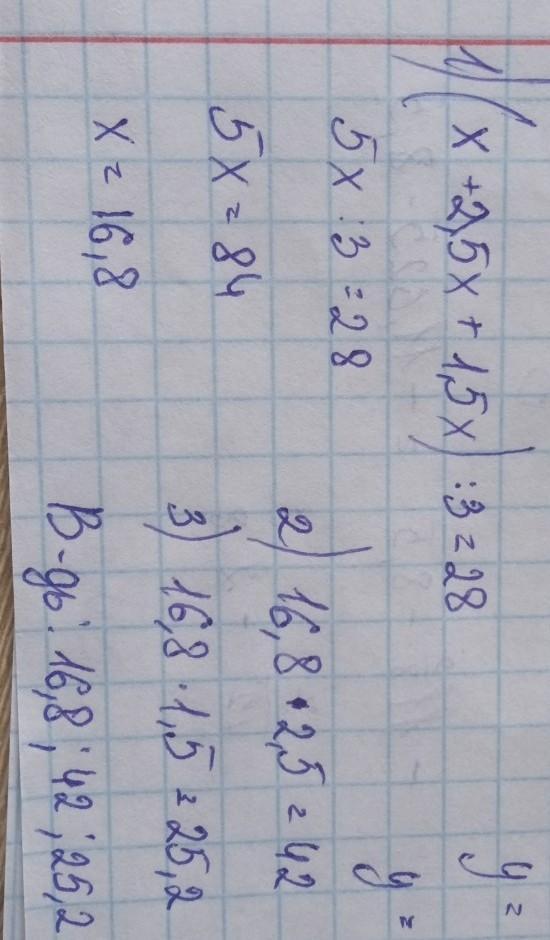 1) (x + 2,5x + 1,5x) : 3 = 28
5x : 3 = 28
5x = 84
x = 16,8
2) 16,8 · 2,5 = 42
3) 16,8 · 1,5 = 25,2
В-дь: 16,8; 42; 25,2
y =
y =